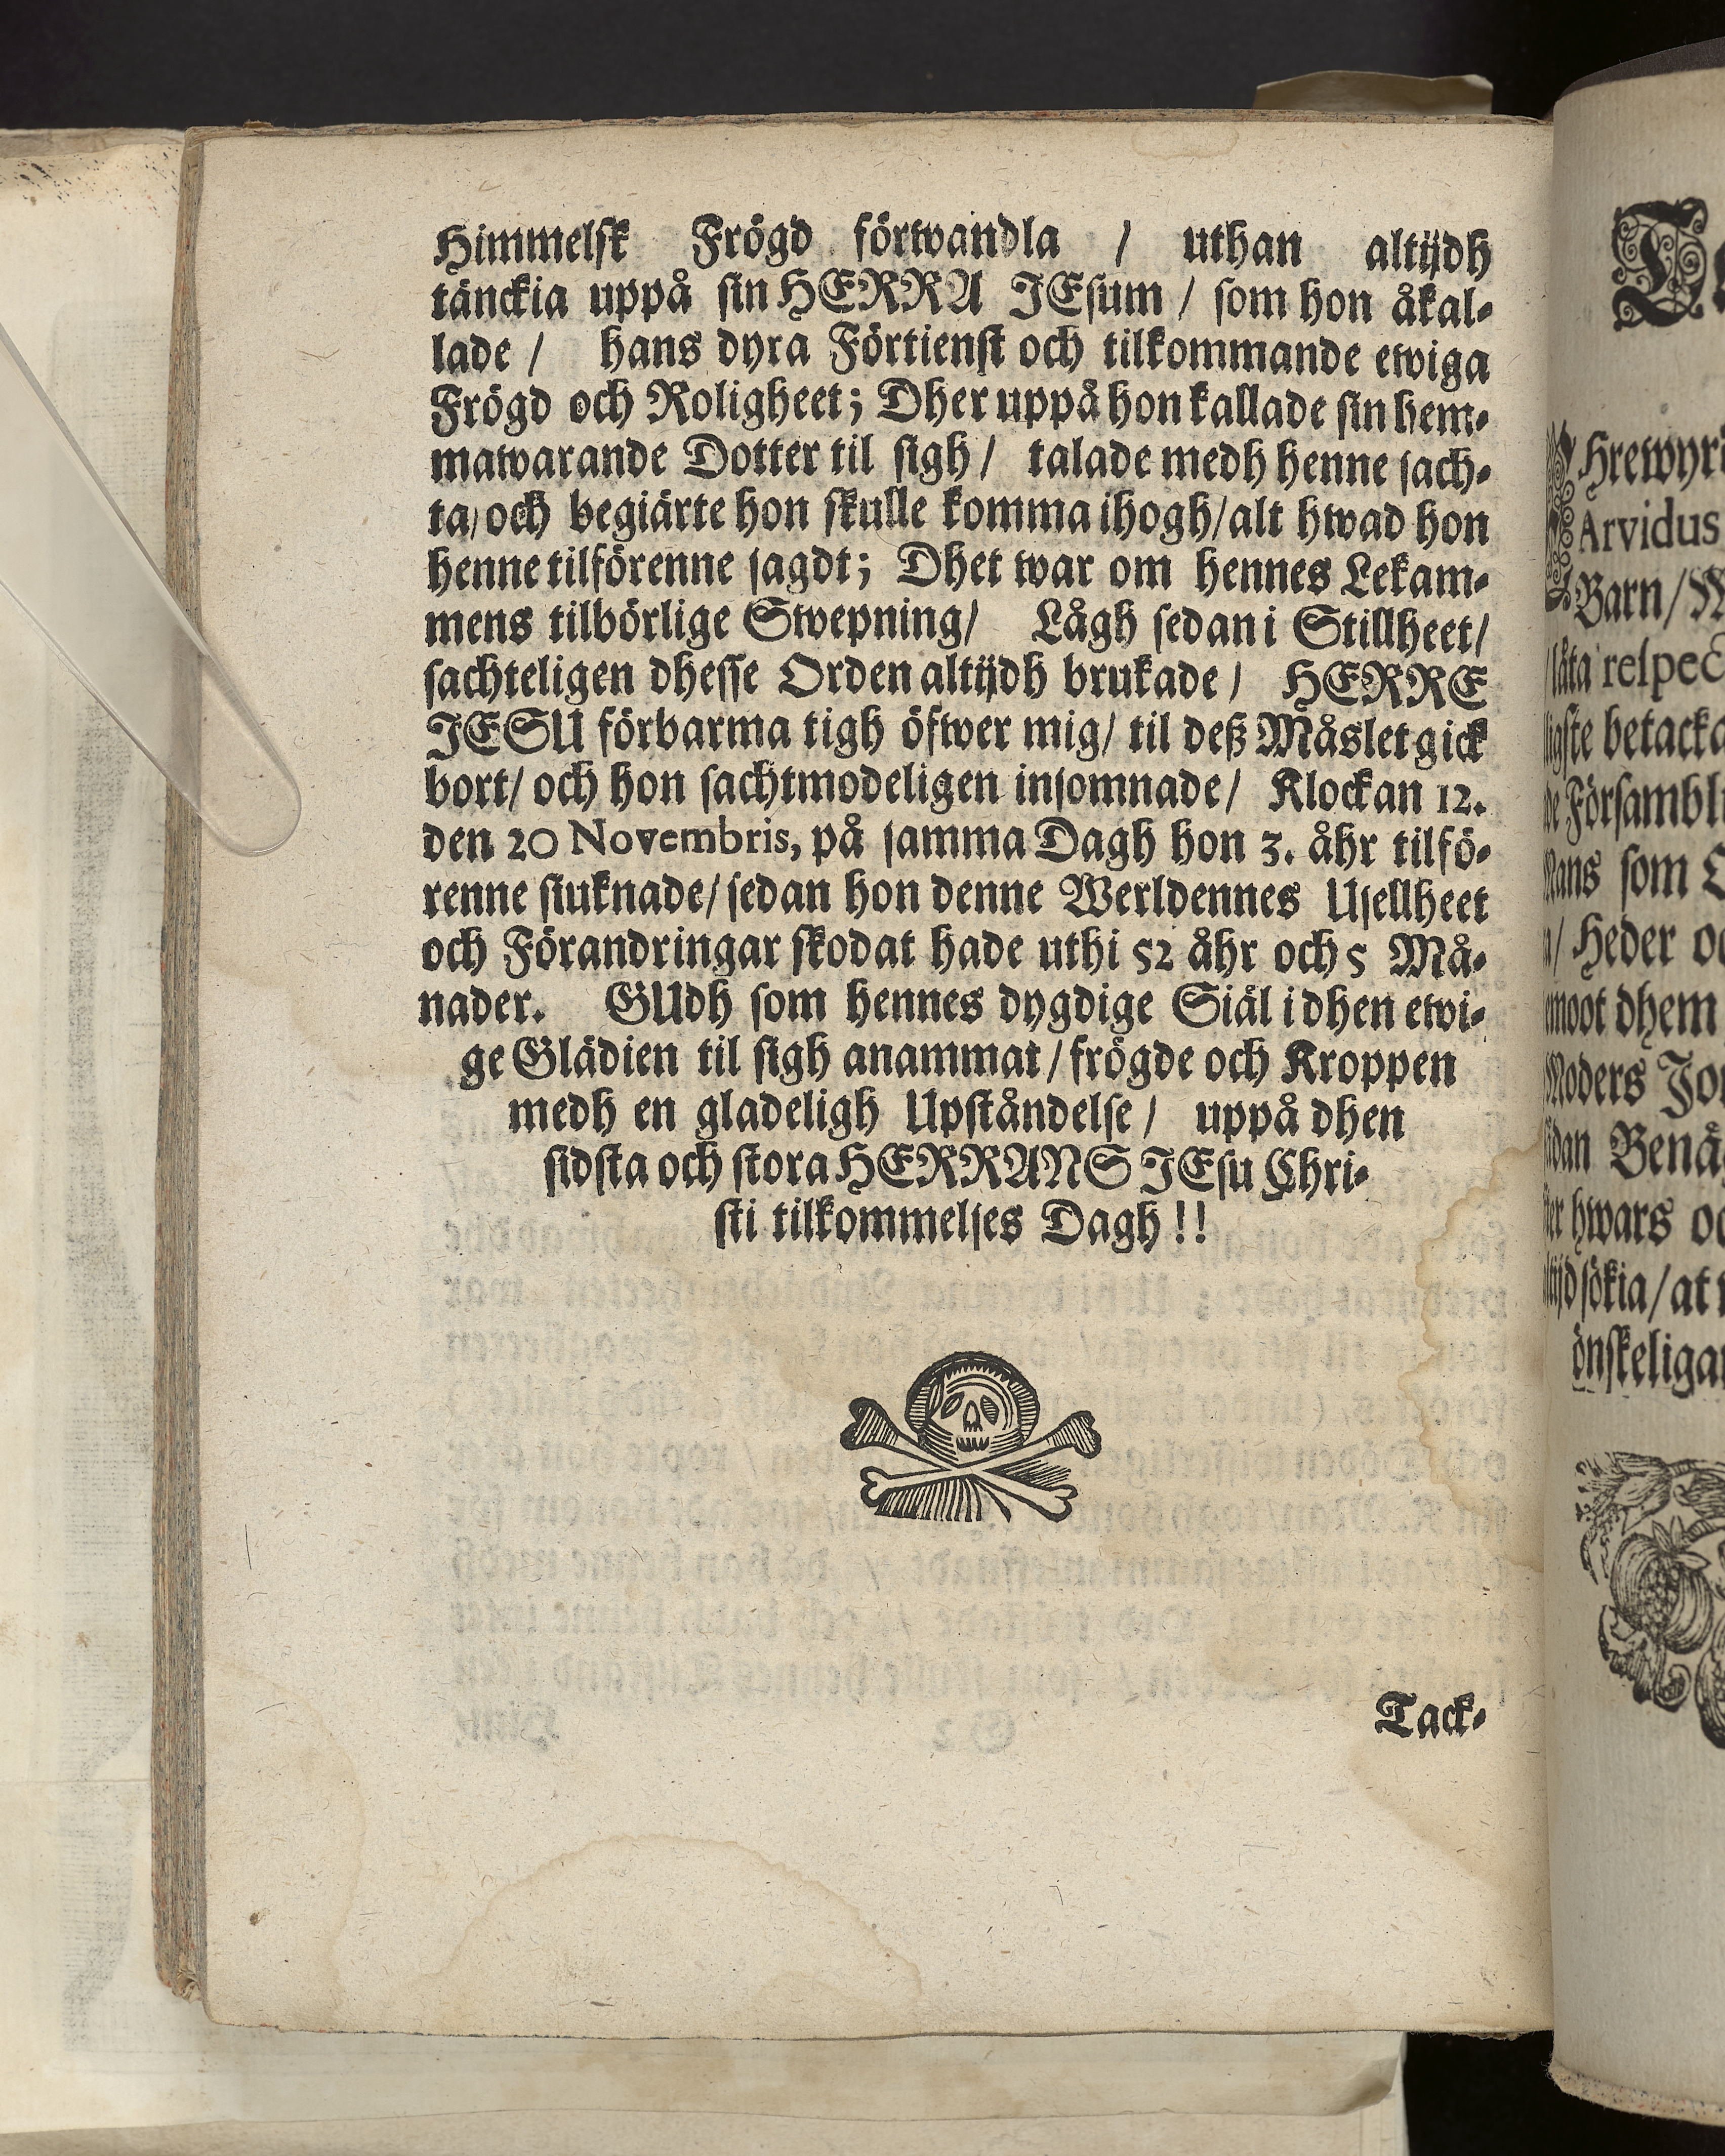 Himmelsk Frögd förwandla / uthan altijdh
tänckia uppå sin HERRA JEsum / som hon åkal-
lade / hans dyra Förtienst och tilkommande ewiga
Frögd och Roligheet; Dher uppå hon kallade sin hem-
mawarande Dotter til sigh / talade medh henne sach-
ta/och begiärte hon skulle komma ihogh/alt hwad hon
henne tilförenne sagdt; Dhet war om hennes Lekam-
mens tilbörlige Swepning/ Lågh sedan i Stillheet/
sachteligen dhesse Orden altijdh brukade / HERRE
JESU förbarma tigh öfwer mig/ til deß Måslet gick
bort/ och hon sachtmodeligen insomnade/ Klockan 12.
den 20 Novembris, på samma Dagh hon 3. åhr tilfö-
renne siuknade/sedan hon denne Werldennes Usellheet
och Förandringar skodat hade uthi 52 åhr och 5 Må-
nader. GUdh som hennes dygdige Siäl i dhen ewi-
ge Glädien til sigh anammat/frögde och Kroppen
medh en gladeligh Upståndelse / uppå dhen
sidsta och stora HERRANS JEsu Chri-
sti tilkommelses Dagh!!
Tack-
Hrewyr
Arvidus
Barn/
låta respec
betacka
Försambl
som
Heder
dhem
Benå
hwars
sökia/at
önskeliga